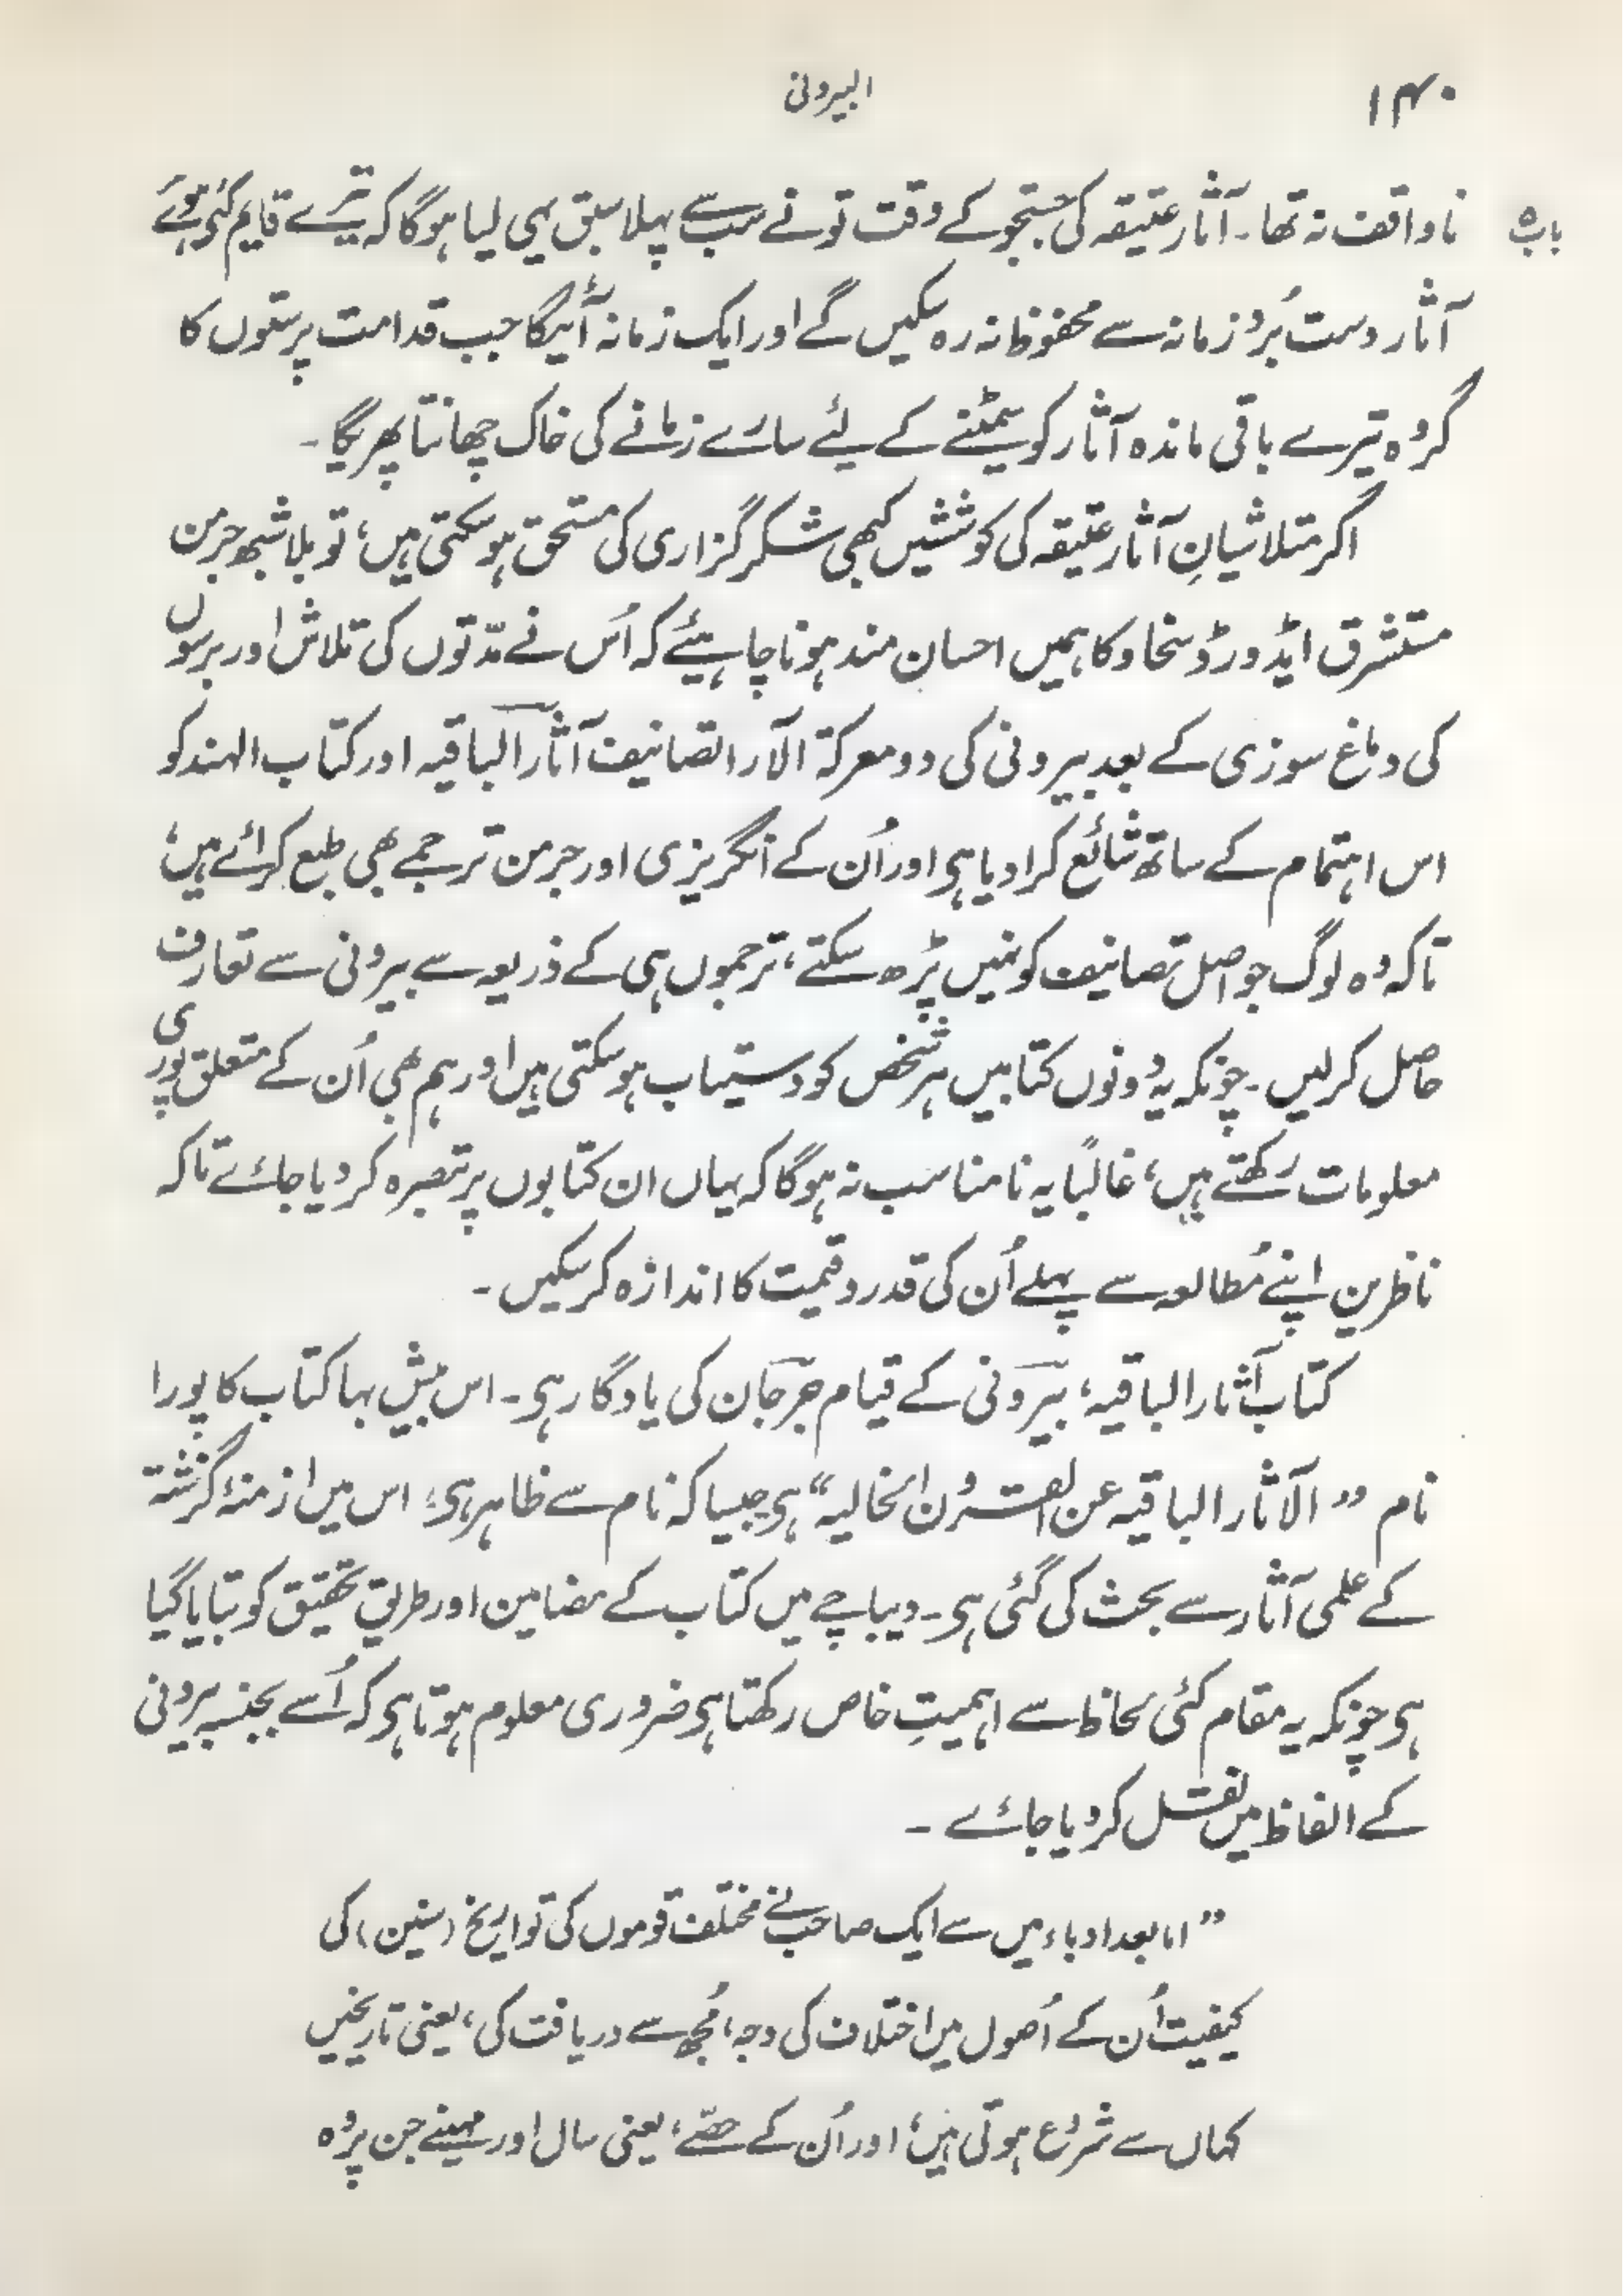 ۱۴۰
البیرونی
باب۵
ناواقف نہ تھا۔ آثار عتیقہ کی جستجو کے وقت تو نے سب سے پہلا سبق یہی لیا ہوگا کہ تیرے قایم کئے ہوئے
آثار دست بُردِ زمانہ سے محفوظ نہ رہ سکیں گے اور ایک زمانہ آئیگا جب قدامت پرستوں کا
گروہ تیرے باقی ماندہ آثار کو سمیٹنے کے لیٔے سارے زمانے کی خاک چھانتا پھریگا۔
اگر متلاشیانِ آثار عتیقہ کی کوششیں کبھی شکر گزاری کی مستحق ہو سکتی ہیں، تو بلا شبھ جرمن
مستشرق ایڈورڈ سخاو کا ہمیں احسان مند ہونا چاہیئے کہ اُس نے مدّتوں کی تلاش اور برسوں
کی دماغ سوزی کے بعد بیرونی کی دو معرکۃ الآرا تصانیف آثار الباقیہ اور کتاب الہند کو
اس اہتمام کے ساتھ شائع کرا دیا ہی اور اُن کے انگریزی اور جرمن ترجمے بھی طبع کرائے ہیں،
تاکہ وہ لوگ جو اصل تصانیف کو نہیں پڑھ سکتے، ترجموں ہی کے ذریعہ سے بیرونی سے تعارف
حاصل کرلیں۔ چونکہ یہ دونوں کتابیں ہر شخص کو دستیاب ہو سکتی ہیں اور ہم بھی اُن کے متعلق پوری
معلومات رکھتے ہیں، غالبًا یہ نامناسب نہ ہوگا کہ یہاں ان کتابوں پر تبصرہ کر دیا جائے تاکہ
ناظرین اپنے مُطالعہ سے پہلے اُن کی قدر و قیمت کا اندازہ کرسکیں۔
کتاب آثار الباقیہ، بیرونی کے قیام جرجان کی یادگار ہی۔ اس بیش بہا کتاب کا پورا
نام ”الآثار الباقیہ عن القرون الخالیہ“ ہی جیسا کہ نام سے ظاہر ہی، اس میں ازمنۂ گزشتہ
کے علمی آثار سے بحث کی گئی ہی۔ دیباچے میں کتاب کے مضامین اور طریق تحقیق کو بتایا گیا
ہی چونکہ یہ مقام کئی لحاظ سے اہمیتِ خاص رکھتا ہی ضروری معلوم ہوتا ہی کہ اُسے بجنسہ بیرونی
کے الفاظ میں نقل کر دیا جائے۔
”اما بعد ادباء میں سے ایک صاحب نے مختلف قوموں کی تواریخ (سنین) کی
کیفیت اُن کے اُصول میں اختلاف کی وجہ، مُجھ سے دریافت کی، یعنی تاریخیں
کہاں سے شروع ہوتی ہیں، اور اُن کے حصّے، یعنی سال اور مہینے جن پر وہ